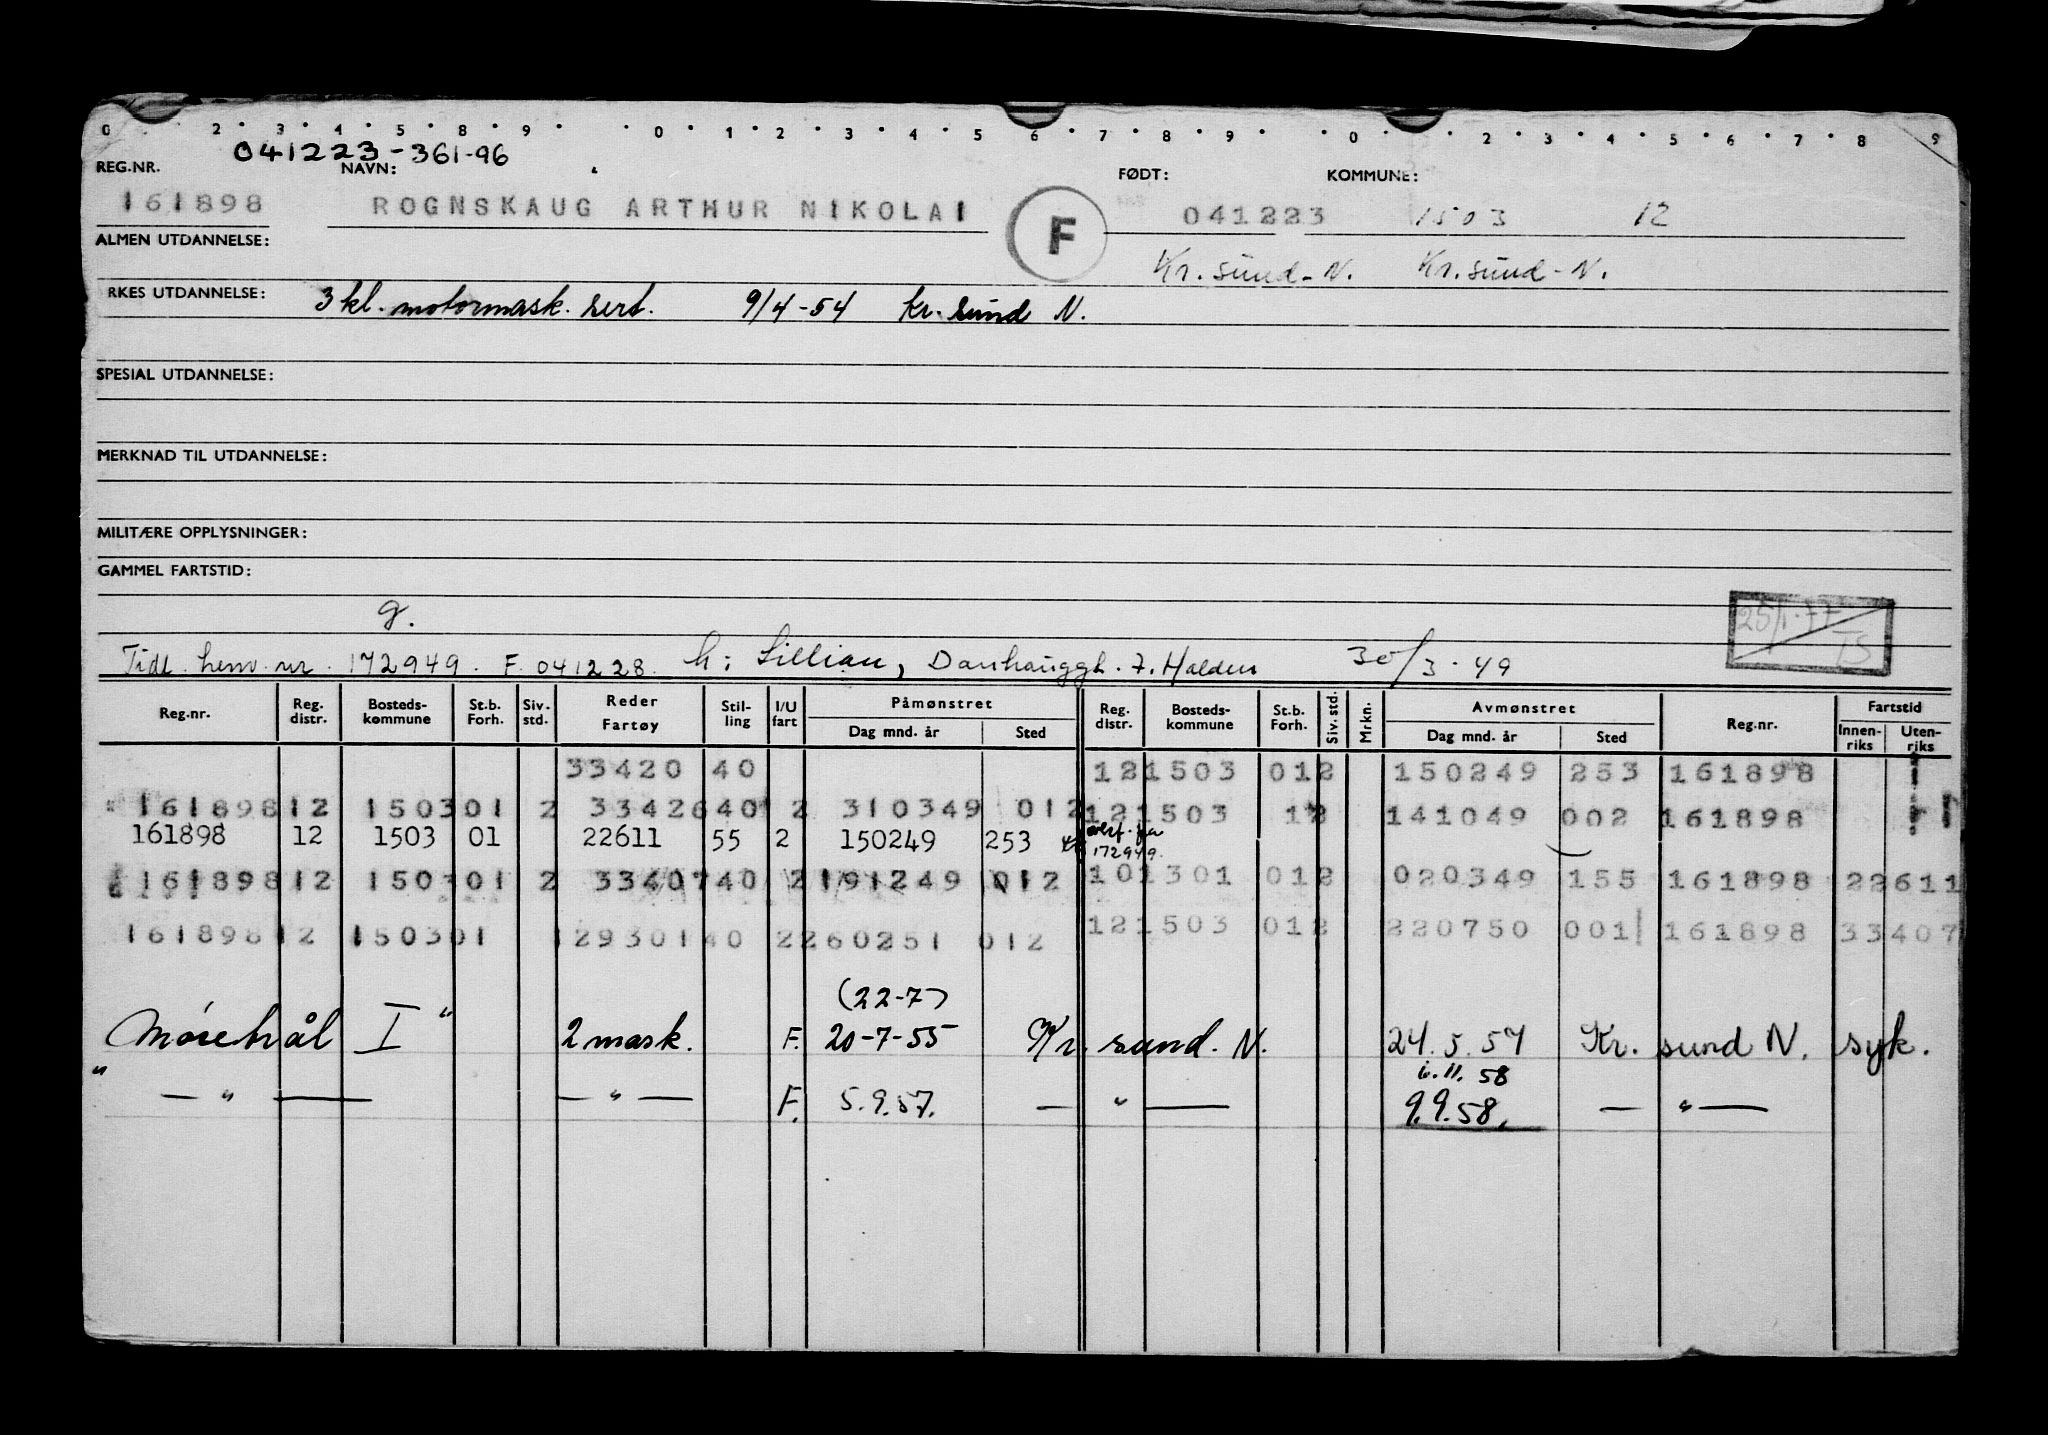 0 2 · 3 · 4 · 5 · 8 · 9 · · 0 · 1 · 2 · 3 · 4 · 5 · 6 · 7 · 8 · 9 · · 0 · 2 · 3 · 4 · 5 · 6 · 7 · 8 · 9
041223-361-96
REG.NR. NAVN: FØDT: KOMMUNE:
161898 ROGNSKAUG ARTHUR NIKOLAI F 041223 1503 12
ALMEN UTDANNELSE: Kr.sund-N. Kr.sund-N.
RKES UTDANNELSE: 3 kl. motormask. sert. 9/4-54 Kr. sund N.
SPESIAL UTDANNELSE:
MERKNAD TIL UTDANNELSE:
MILITÆRE OPPLYSNINGER:
GAMMEL FARTSTID:
g. 25/1-77
TS
Tidl. henv. nr. 172949. F. 041228. h: Lillian, Danhauggt. 7. Halden 30/3-49
Reg.nr. Reg. distr. Bosteds-kommune St.b. Forh. Siv. std. Reder Fartøy Stil-ling I/U fart Påmønstret Dag mnd. år Sted Reg. distr. Bosteds-kommune St.b. Forh. Siv. std. Mrkn. Avmønstret Dag mnd. år Sted Reg.nr. Fartstid Innen-riks Uten-riks
33420 40 12 1503 012 150249 253 161898
161898 12 1503 01 2 33426 40 2 310349 012 12 1503 1 2 141049 002 161898
161898 12 1503 01 22611 55 2 150249 253 overf. fra 172949.
161898 12 1503 01 2 33407 40 2 191249 012 10 1301 012 020349 155 161898 22611
161898 12 1503 01 1 29301 40 2 260251 012 12 1503 012 220750 001 161898 33407
(22-7)
"Møretrål I" 2 mask. F. 20-7-55 Kr. sund. N. 24.5.57 Kr. sund N. syk.
i.11.58
" — " — — " — F. 5.9.57. — " — 9.9.58. — " —